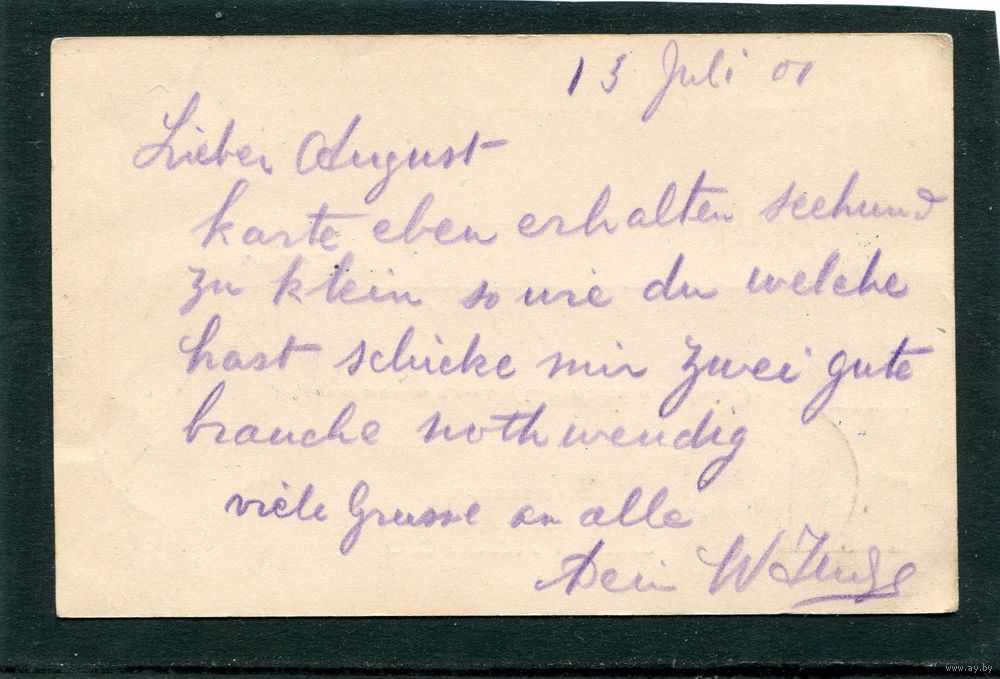 13 Juli 01
Lieber August
karte eben erhalten seehund
zu klein so wie du welche
hast schicke mir zwei gute
brauche nothwendig
viele Grusse an alle
Dein W
www.ay.by